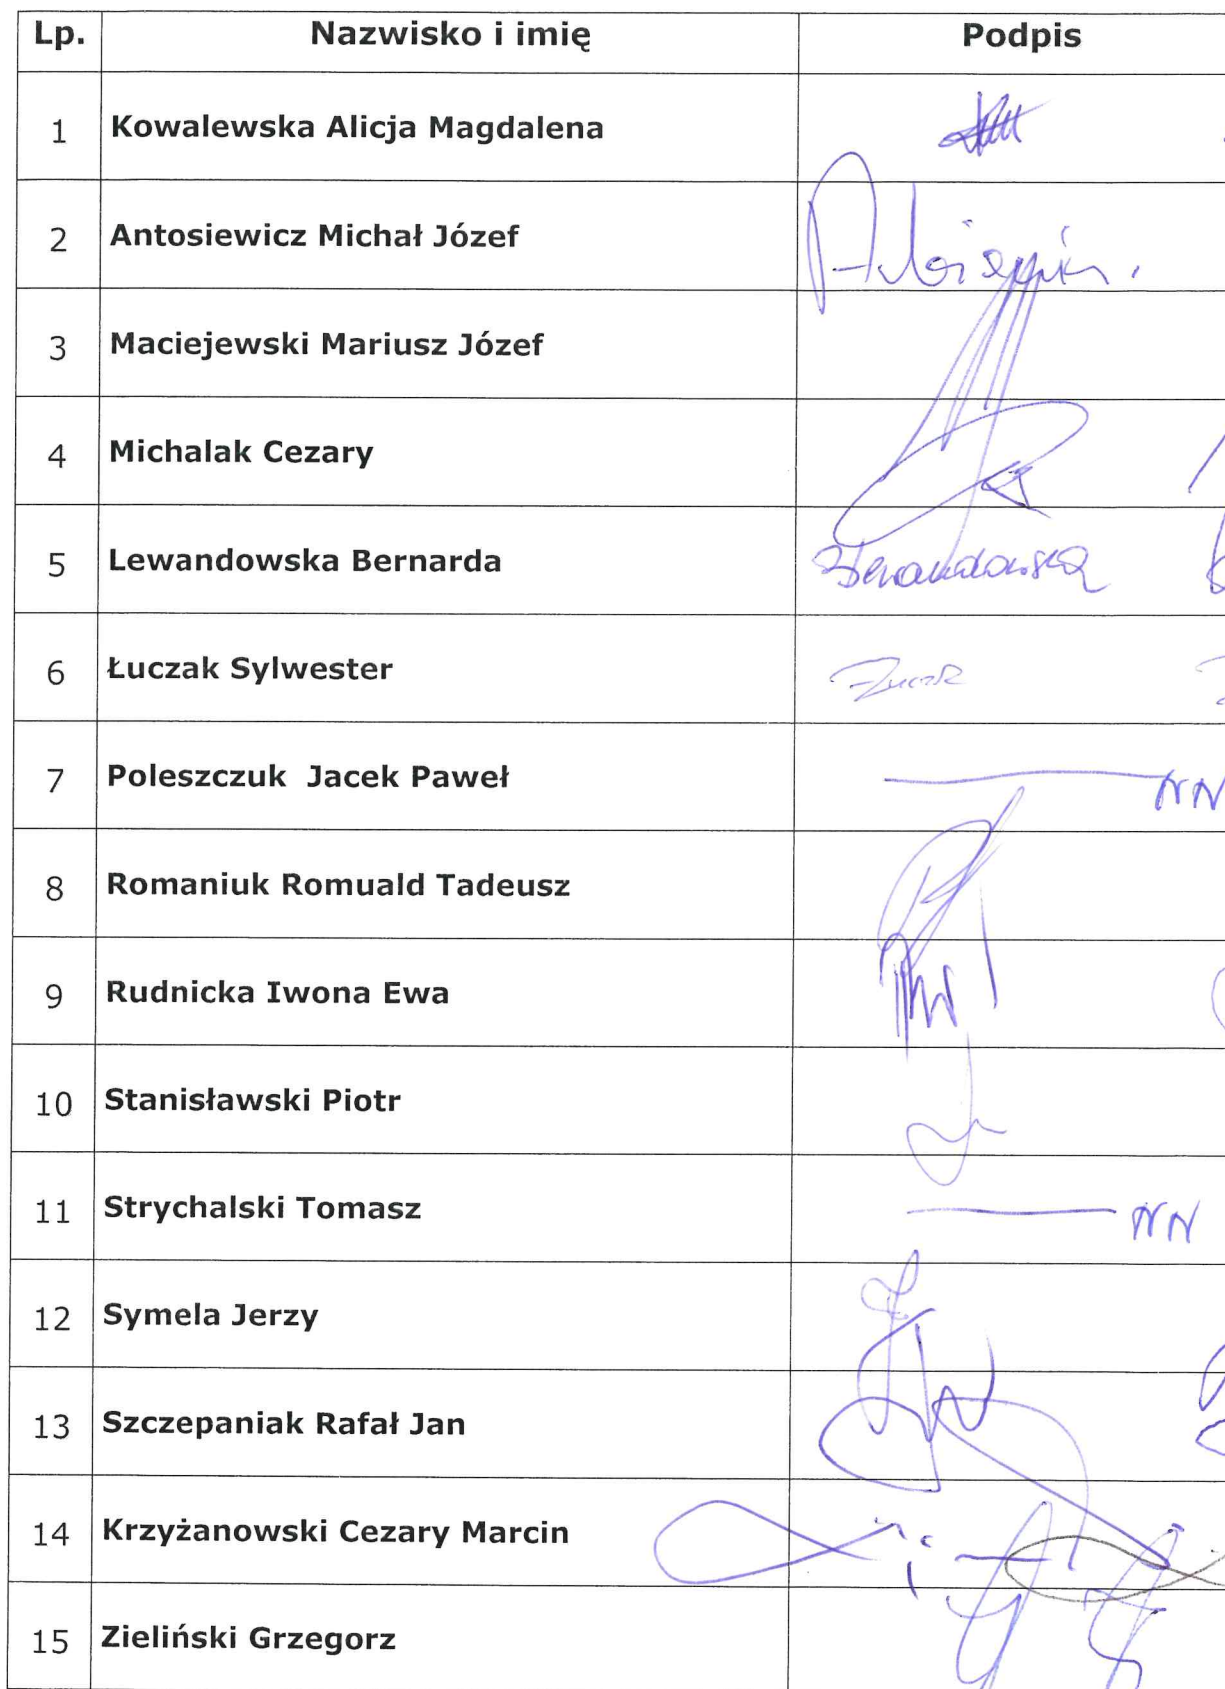 Lp. Nazwisko i imię Podpis
1 Kowalewska Alicja Magdalena
2 Antosiewicz Michał Józef
3 Maciejewski Mariusz Józef
4 Michalak Cezary
5 Lewandowska Bernarda BLewandowska
6 Łuczak Sylwester Łuczak
7 Poleszczuk Jacek Paweł NN
8 Romaniuk Romuald Tadeusz
9 Rudnicka Iwona Ewa
10 Stanisławski Piotr
11 Strychalski Tomasz NN
12 Symela Jerzy
13 Szczepaniak Rafał Jan
14 Krzyżanowski Cezary Marcin
15 Zieliński Grzegorz